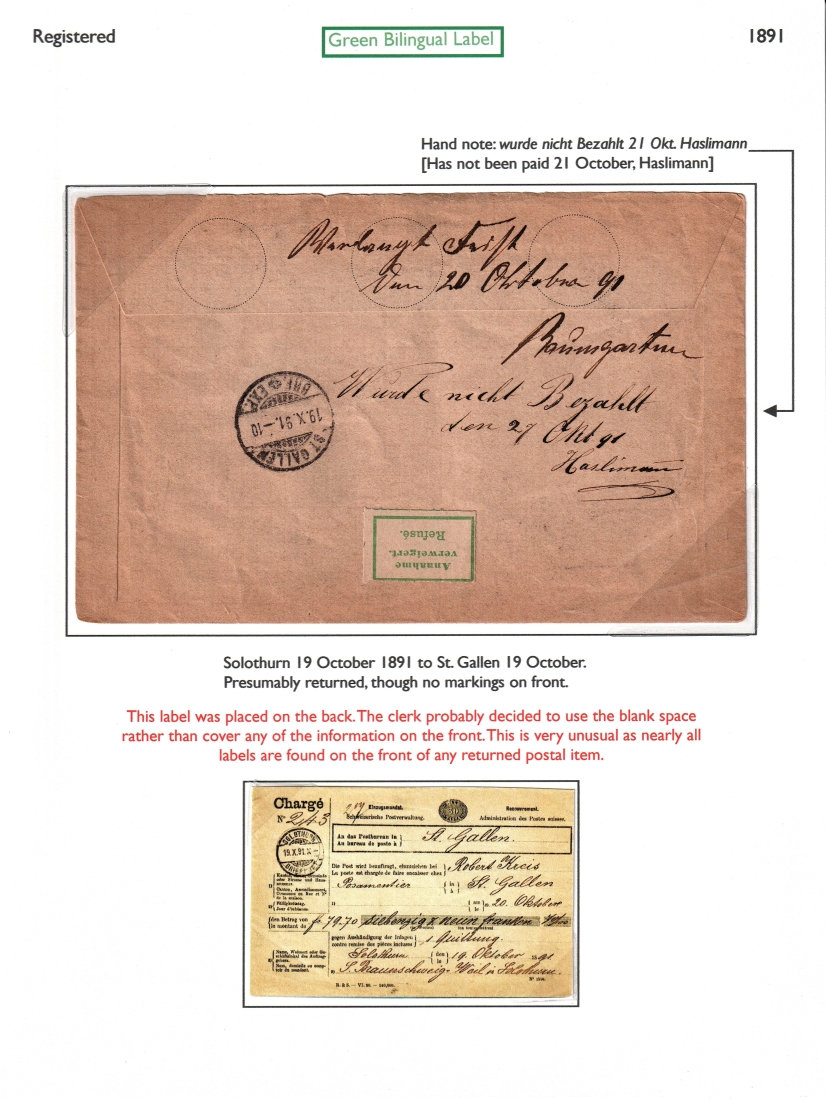 Registered
Green Bilingual Label
1891
Hand note: wurde nicht Bezahlt 21 Okt. Haslimann
[Has not been paid 21 October, Haslimann]
Verlangt Frist
Den 20 Oktober 91
Baumgartner
Wurde nicht Bezahlt
den 27 Okt 91
Haslimann
ST. GALLEN
19.X.91.-10
BRF. EXP.
Annahme
verweigert.
Refusé.
Solothurn 19 October 1891 to St. Gallen 19 October.
Presumably returned, though no markings on front.
This label was placed on the back. The clerk probably decided to use the blank space
rather than cover any of the information on the front. This is very unusual as nearly all
labels are found on the front of any returned postal item.
Chargé
No 243
Einzugsmandat. Recouvrement.
Schweizerische Postverwaltung. Administration des Postes suisses.
SOLOTHURN
19.X.91
An das Postbureau in
Au bureau de poste à
St. Gallen.
Die Post wird beauftragt, einzuziehen bei
La poste est chargée de faire encaisser chez
Robert
Posamentier in à St. Gallen
20. Oktober
den Betrag von
le montant de
fr 79.70 siebenzig & neun franken
gegen Aushändigung der Inlagen
contre remise des pièces incluses
1 Quittung.
Solothurn den le 19. Oktober 1891
S. Braunschweig-Weil in Solothurn.